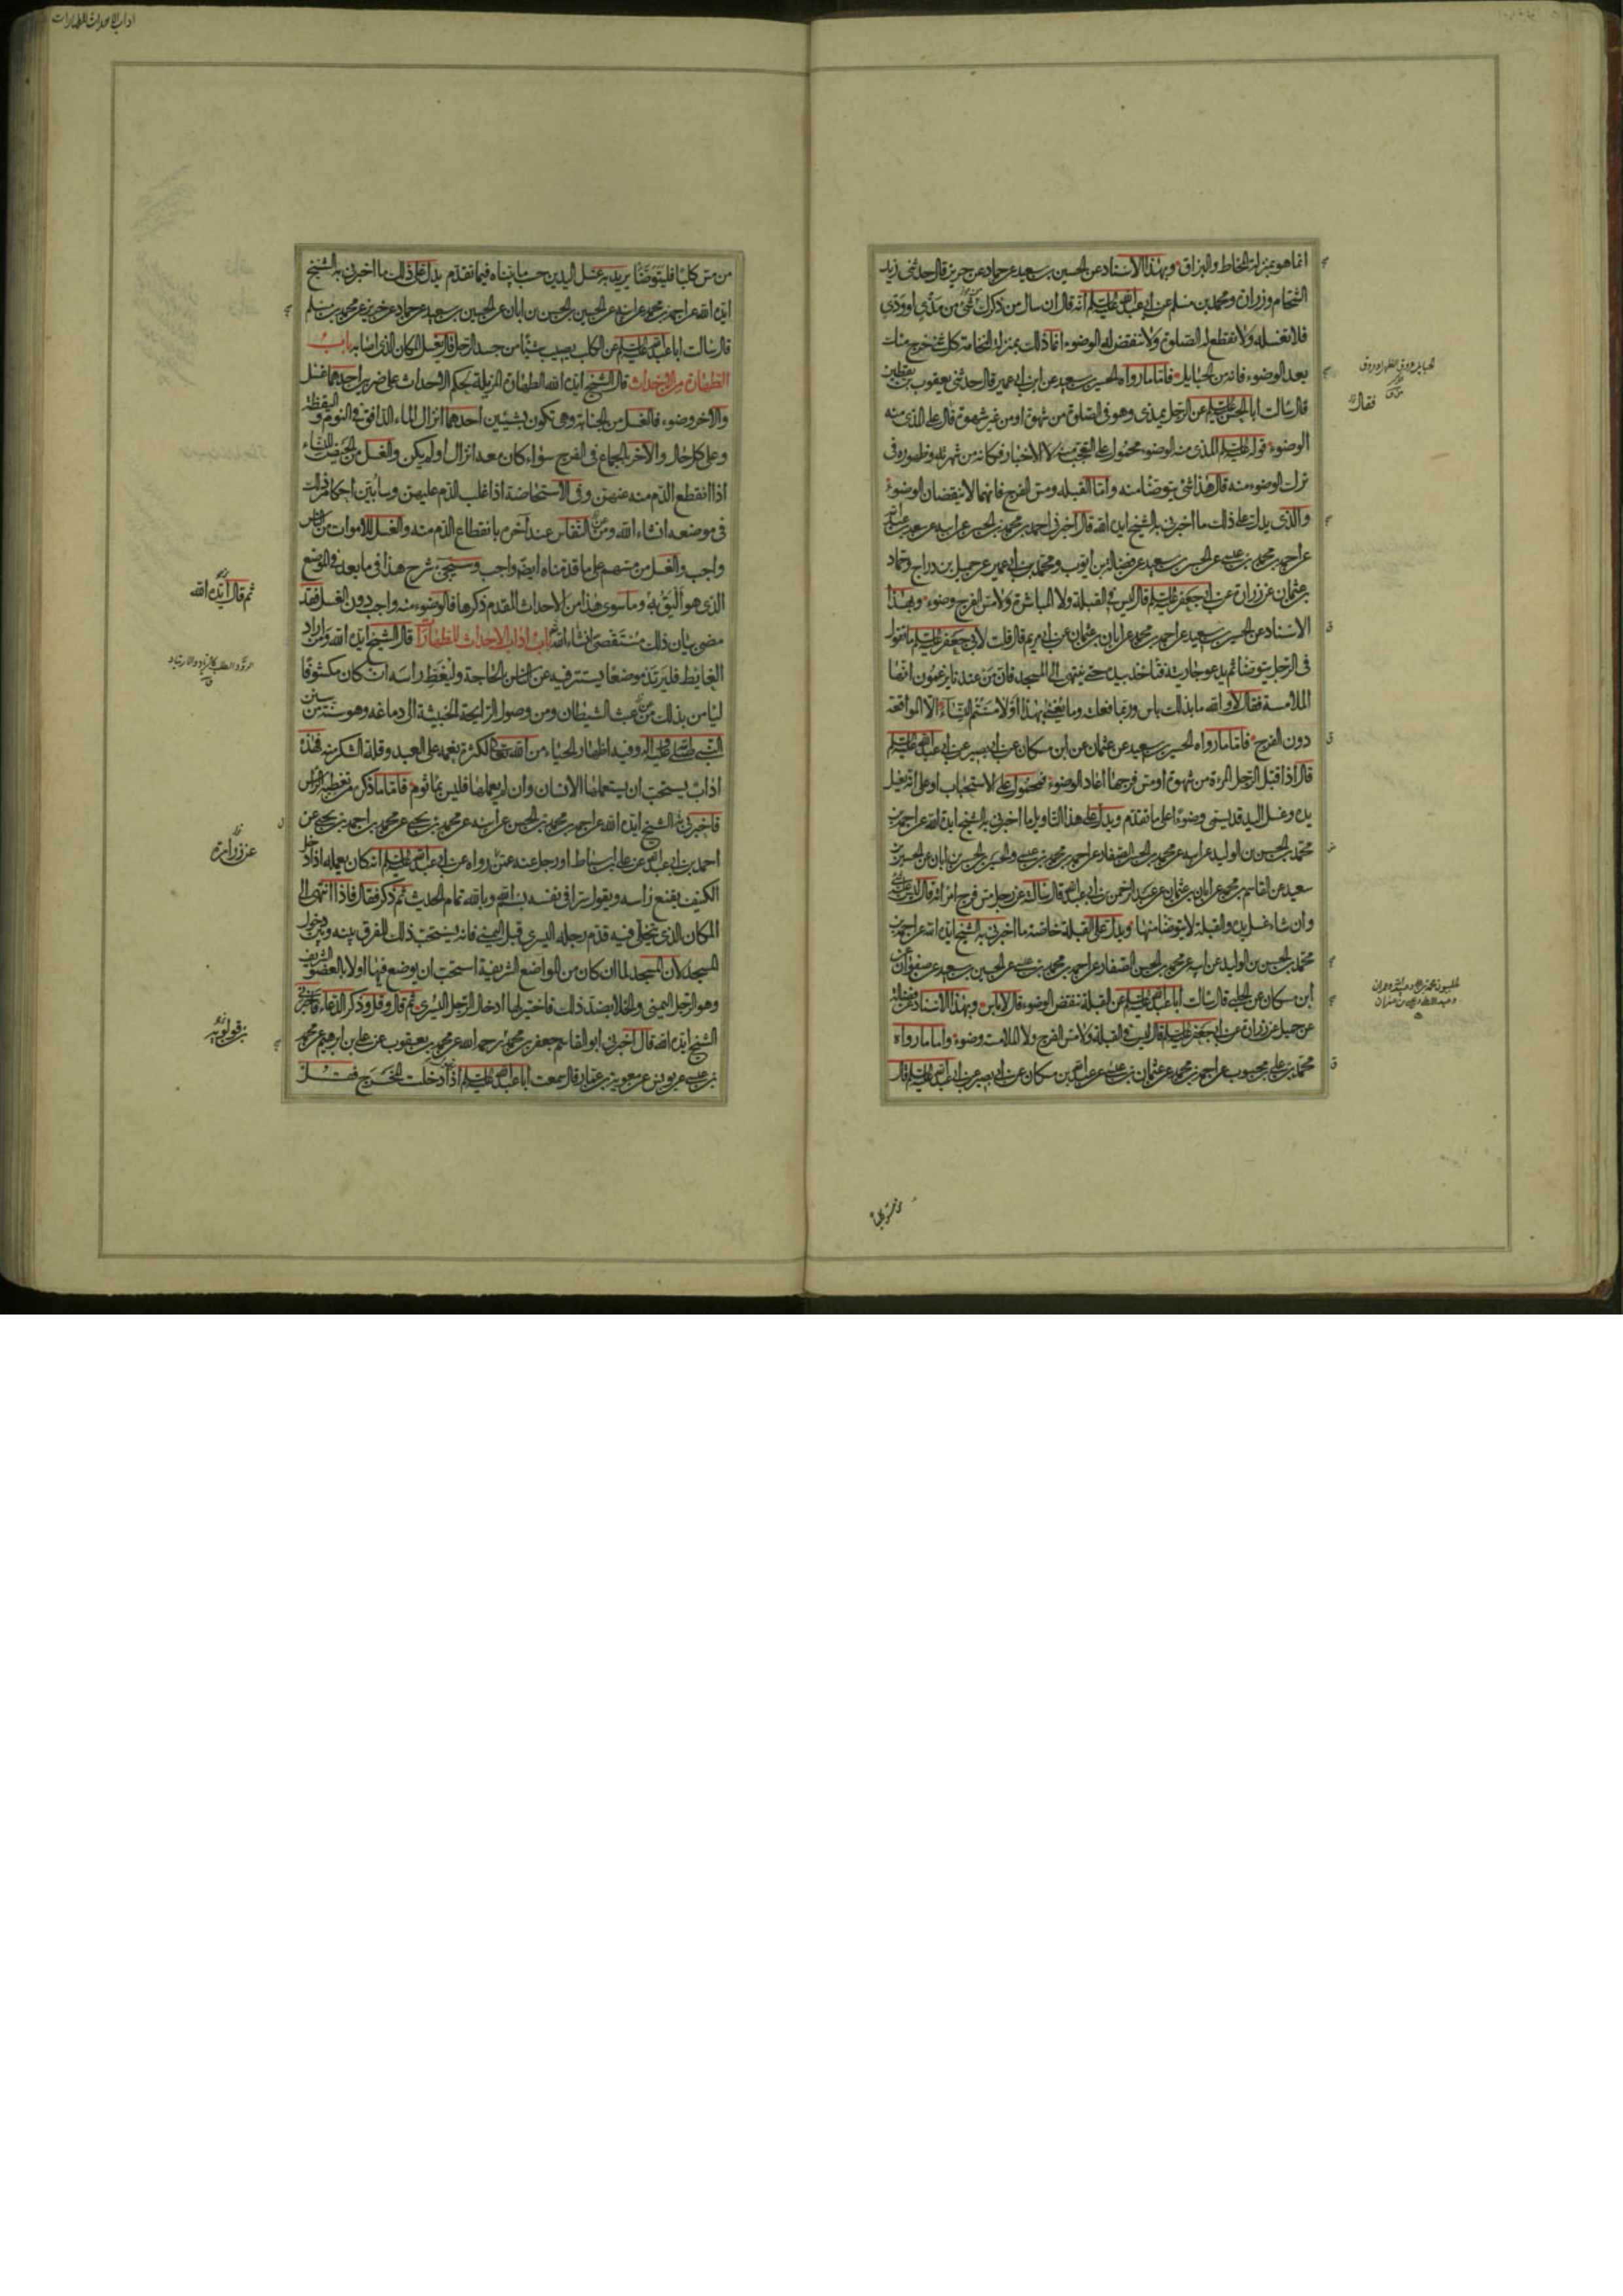 انما هو بمنزلة المخاط والبزاق وبهذا الاسناد عن الحسين بن سعيد عن حماد عن حريز قال حدثنى زيد
الشحام وزرارة ومحمد بن مسلم عن ابى عبد الله عليه السلم انه قال ان سال من ذكرك شئ من مذى او ودى
فلا تغسله ولا تقطع له الصلوة ولا تنقض له الوضوء انما ذلك بمنزلة النخامة كل شئ خرج منك
بعد الوضوء فانه من الحبايل فاما ما رواه الحسين بن سعيد عن ابن ابى عمير قال حدثنى يعقوب بن يقطين
قال سالت ابا الحسن عليه السلم عن الرجل يمذى وهو فى الصلوة من شهوة او من غير شهوة قال على المذى منه
الوضوء قوله عليه السلم المذى منه الوضوء محمول على التعجب منه لا الاخبار فكانه من شهرته وظهوره فى
ترك الوضوء منه قال هذا شئ يتوضأ منه واما القبلة ومس الفرج فانهما لا ينقضان الوضوء
والذى يدل على ذلك ما اخبرنى به الشيخ ايده الله قال اخبرنى احمد بن محمد بن الحسن عن ابيه عن سعد بن عبد الله
عن احمد بن محمد بن عيسى عن الحسين بن سعيد عن فضالة بن ايوب ومحمد بن ابى عمير عن جميل بن دراج وحماد
بن عثمان عن زرارة عن ابى جعفر عليه السلم قال ليس فى القبلة ولا المباشرة ولا مس الفرج وضوء وبهذا
الاسناد عن الحسين بن سعيد عن احمد بن محمد عن ابان بن عثمان عن ابى مريم قال قلت لابى جعفر عليه السلم ما تقول
فى الرجل يتوضأ ثم يدعو جاريته فتاخذ بيده حتى ينتهى الى المسجد فان من عندنا يزعمون انها
الملامسة فقال لا والله ما بذلك باس وربما فعلته وما يعنى بهذا او لامستم النساء الا المواقعة
دون الفرج فاما ما رواه الحسين بن سعيد عن عثمان عن ابن مسكان عن ابى بصير عن ابى عبد الله عليه السلم
قال اذا قبل الرجل المرءة من شهوة او مس فرجها اعاد الوضوء فمحمول على الاستحباب او على انه يغسل
يده وغسل اليد قد يسمى وضوءا على ما تقدم ويدل على هذا التاويل ما اخبرنى به الشيخ ايده الله عن احمد بن
محمد بن الحسن بن الوليد عن ابيه عن محمد بن الحسن الصفار عن احمد بن محمد بن عيسى والحسين بن الحسن بن ابان عن الحسين بن
سعيد عن القاسم بن محمد عن ابان بن عثمان عن عبد الرحمن بن ابى عبد الله قال سالته عن رجل مس فرج امراته قال ليس عليه شئ
وان شاء غسل يده والقبلة لا يتوضأ منها ويدل على القبلة خاصة ما اخبرنى به الشيخ ايده الله عن احمد بن
محمد بن الحسن بن الوليد عن ابيه عن محمد بن الحسن الصفار عن احمد بن محمد بن عيسى عن الحسين بن سعيد عن صفوان عن
ابن مسكان عن الحلبى قال سالت ابا عبد الله عليه السلم عن القبلة تنقض الوضوء قال لا باس وبهذا الاسناد عن فضالة
عن جميل عن زرارة عن ابى جعفر عليه السلم قال ليس فى القبلة ولا مس الفرج ولا الملامسة وضوء واما ما رواه
محمد بن على بن محبوب عن احمد بن محمد عن عثمان بن عيسى عن عبد الله بن مسكان عن ابى بصير عن ابى عبد الله عليه السلم قال
فقال
من مس كلبا
اداب الاحداث للطهارات
من مس كلبا فليتوضأ يريد به غسل اليدين حسب ما بيناه فيما تقدم يدل على ذلك ما اخبرنى به الشيخ
ايده الله عن احمد بن محمد عن ابيه عن الحسين بن الحسن بن ابان عن الحسين بن سعيد عن حماد عن حريز عن محمد بن مسلم
قال سالت ابا عبد الله عليه السلم عن الكلب يصيب شيئا من جسد الرجل قال يغسل المكان الذى اصابه باب
الطهارة من الاحداث قال الشيخ ايده الله الطهارة المزيلة لحكم الاحداث على ضربين احدهما غسل
والاخر وضوء فالغسل من الجنابة وهى تكون بشيئين احدهما انزال الماء الدافق فى النوم واليقظة
وعلى كل حال والاخر بالجماع فى الفرج سواء كان معه انزال او لم يكن والغسل من الحيض للنساء
اذا انقطع الدم منه عنهن وفى الاستحاضة اذا غلب الدم عليهن وسابين احكام ذلك
فى موضعه انشاء الله ومن النفاس عند اخره بانقطاع الدم منه والغسل للاموات من الناس
واجب والغسل من مسهم على ما قدمناه ايضا واجب وسيجئ شرح هذا فى ما بعد فى الموضع
الذى هو اليق به وما سوى هذا من الاحداث المقدم ذكرها فالوضوء منه واجب دون الغسل فقد
مضى بيان ذلك مستقصى انشاء الله باب اداب الاحداث للطهارات قال الشيخ ايده الله ومن اراد
الغايط فليرتد موضعا يستتر فيه عن الناس للحاجة وليغط راسه ان كان مكشوفا
ليامن بذلك من عبث الشيطان ومن وصول الرايحة الخبيثة الى دماغه وهو سنة من سنن
النبى صلى الله عليه واله وفيه اظهار الحياء من الله تعالى لكثرة نعمه على العبد وقلة الشكر منه فهذه
اداب يستحب ان يستعملها الانسان وان لم يعملها فليس بماثوم فاما ما ذكره من تغطية الراس
فاخبرنى به الشيخ ايده الله عن احمد بن محمد بن الحسن عن ابيه عن محمد بن يحيى عن محمد بن احمد بن يحيى عن
احمد بن ابى عبد الله عن على بن اسباط او رجل عنه عمن رواه عن ابى عبد الله عليه السلم انه كان يعمله اذا دخل
الكنيف يقنع راسه ويقول سرا فى نفسه بسم الله وبالله تمام الحديث ثم ذكر فقال فاذا انتهى الى
المكان الذى يتخلى فيه قدم رجله اليسرى قبل اليمنى فانه يستحب ذلك للفرق بينه وبين دخول
المسجد لان المسجد لما ان كان من المواضع الشريفة استحب ان يوضع فيها اولا بالعضو الشريف
وهو الرجل اليمنى والخلا بضد ذلك فاختير لها ادخال الرجل اليسرى ثم قال وقل وذكر الدعاء فاخبرنى
الشيخ ايده الله قال اخبرنى ابو القاسم جعفر بن محمد رحمه الله عن محمد بن يعقوب عن على بن ابرهيم عن محمد
بن عيسى عن يونس عن معوية بن عمار قال سمعت ابا عبد الله عليه السلم اذا دخلت المخرج فقل
ثم قال ايده الله
عن زرارة
بن قولويه